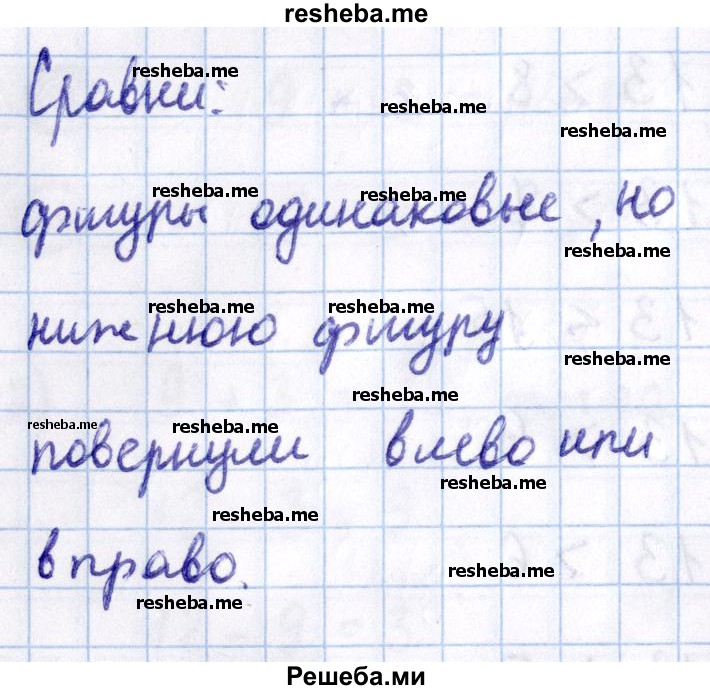 resheba.me
Сравни: resheba.me
resheba.me
resheba.me
resheba.me resheba.me
фигуры одинаковые, но
resheba.me
resheba.me resheba.me
нижнюю фигуру
resheba.me
resheba.me
resheba.me resheba.me
повернули влево или
resheba.me
resheba.me
вправо.
resheba.me
resheba.me
Решеба.ми